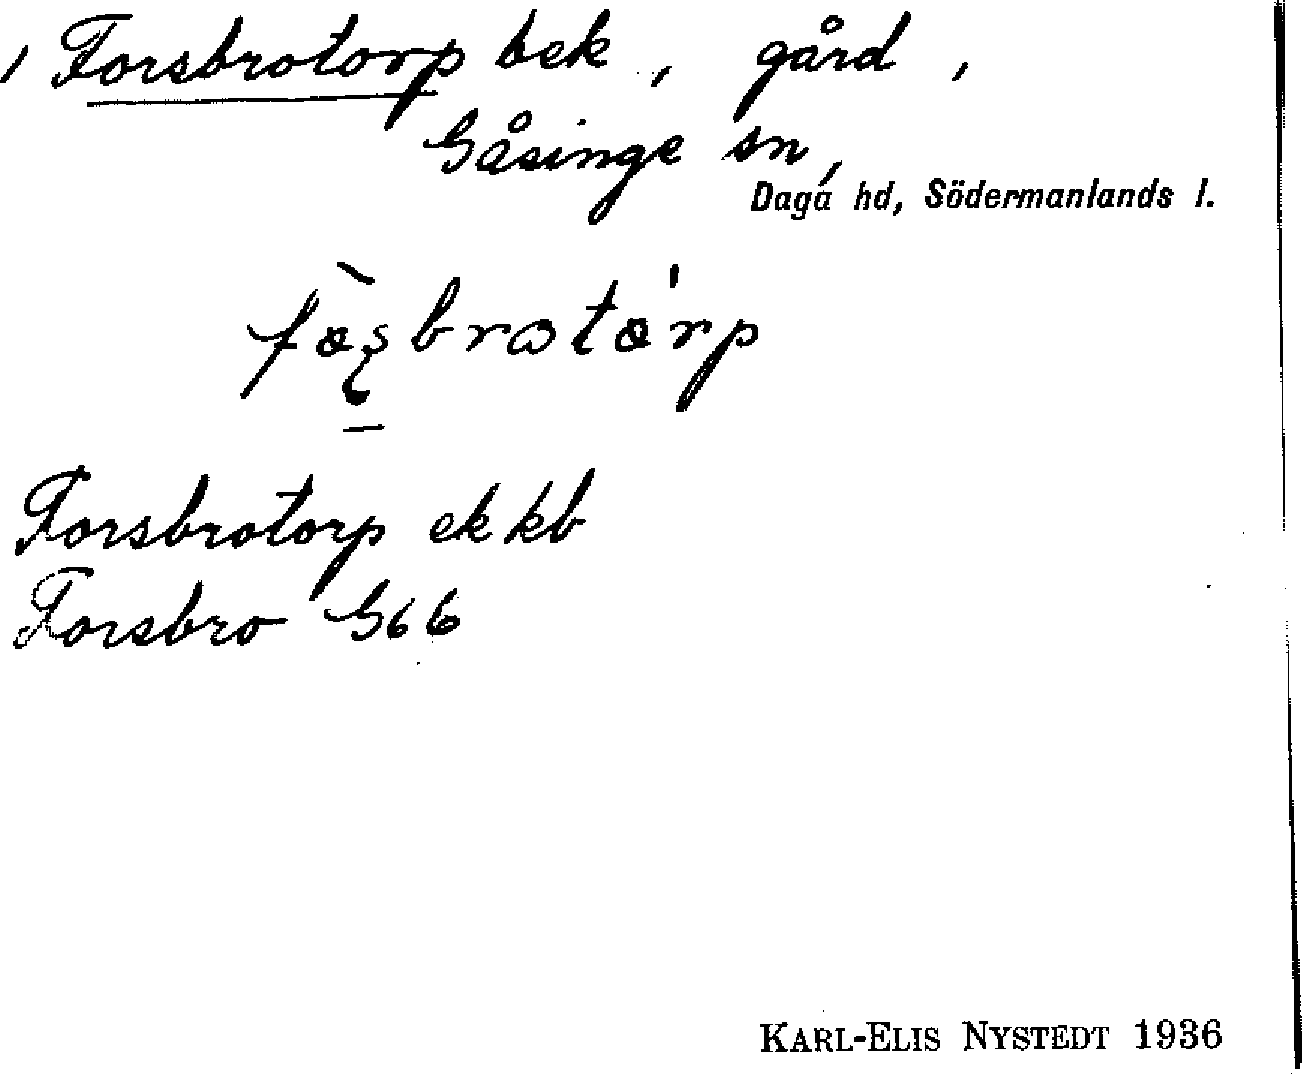 / Forsbrotorp bek, gård,
Gåsinge sn,
Daga hd, Södermanlands l.
Forsbrotorp ekkb
Forsbro G66
KARL-ELIS NYSTEDT 1936